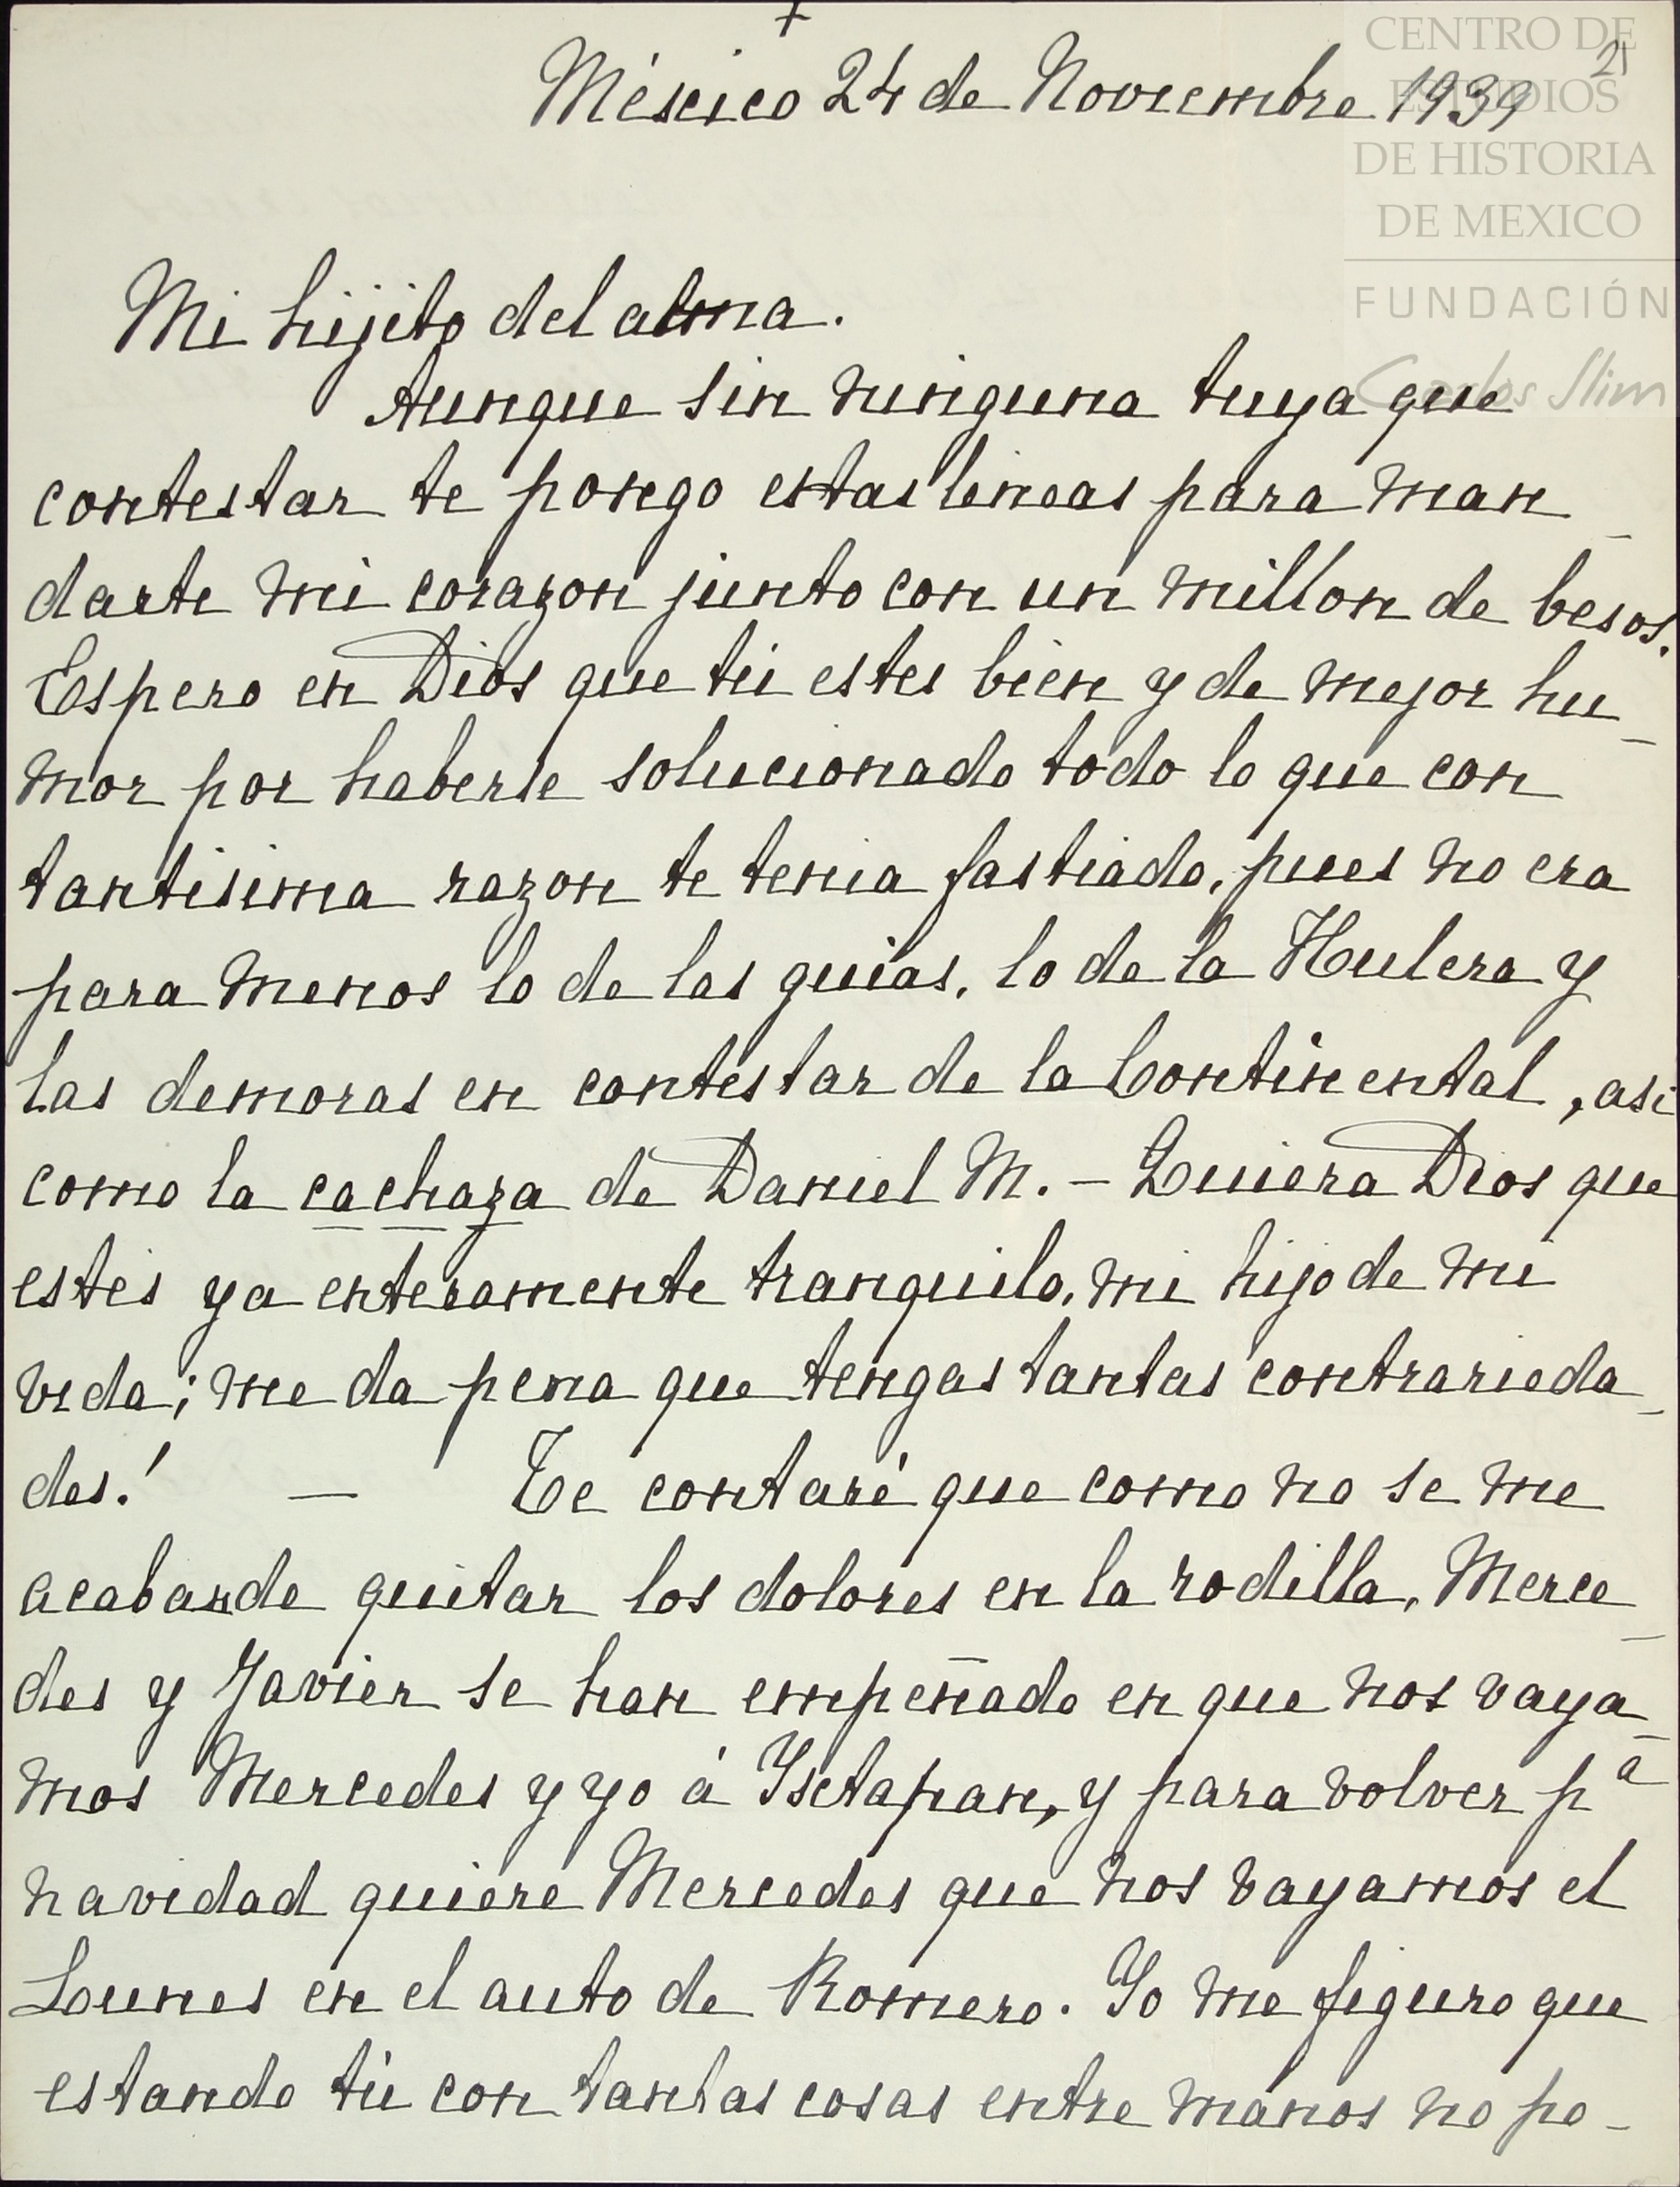 +
México 24 de Noviembre 1939
21
CENTRO DE
ESTUDIOS
DE HISTORIA
DE MEXICO
FUNDACIÓN
Carlos Slim
Mi hijito del alma.
Aunque sin ninguna tuya que
contestar te pongo estas lineas para man_
darte mi corazon junto con un millon de besos.
Espero en Dios que tú estes bien y de mejor hu_
mor por haberse solucionado todo lo que con
tantisima razon te tenia fastiado, pues no era
para menos lo de las guias, lo de la Hulera y
las demoras en contestar de la Continental, asi
como la cachaza de Daniel M. — Quiera Dios que
estés ya enteramente tranquilo, mi hijo de mi
vida; me da pena que tengas tantas contrarieda_
des! — Te contaré que como no se me
acaban de quitar los dolores en la rodilla, Merce_
des y Javier se han empeñado en que nos vaya_
mos Mercedes y yo á Ixtapan, y para volver pª
navidad quiere Mercedes que nos vayamos el
Lunes en el auto de Romero. Yo me figuro que
estando tú con tantas cosas entre manos no po_